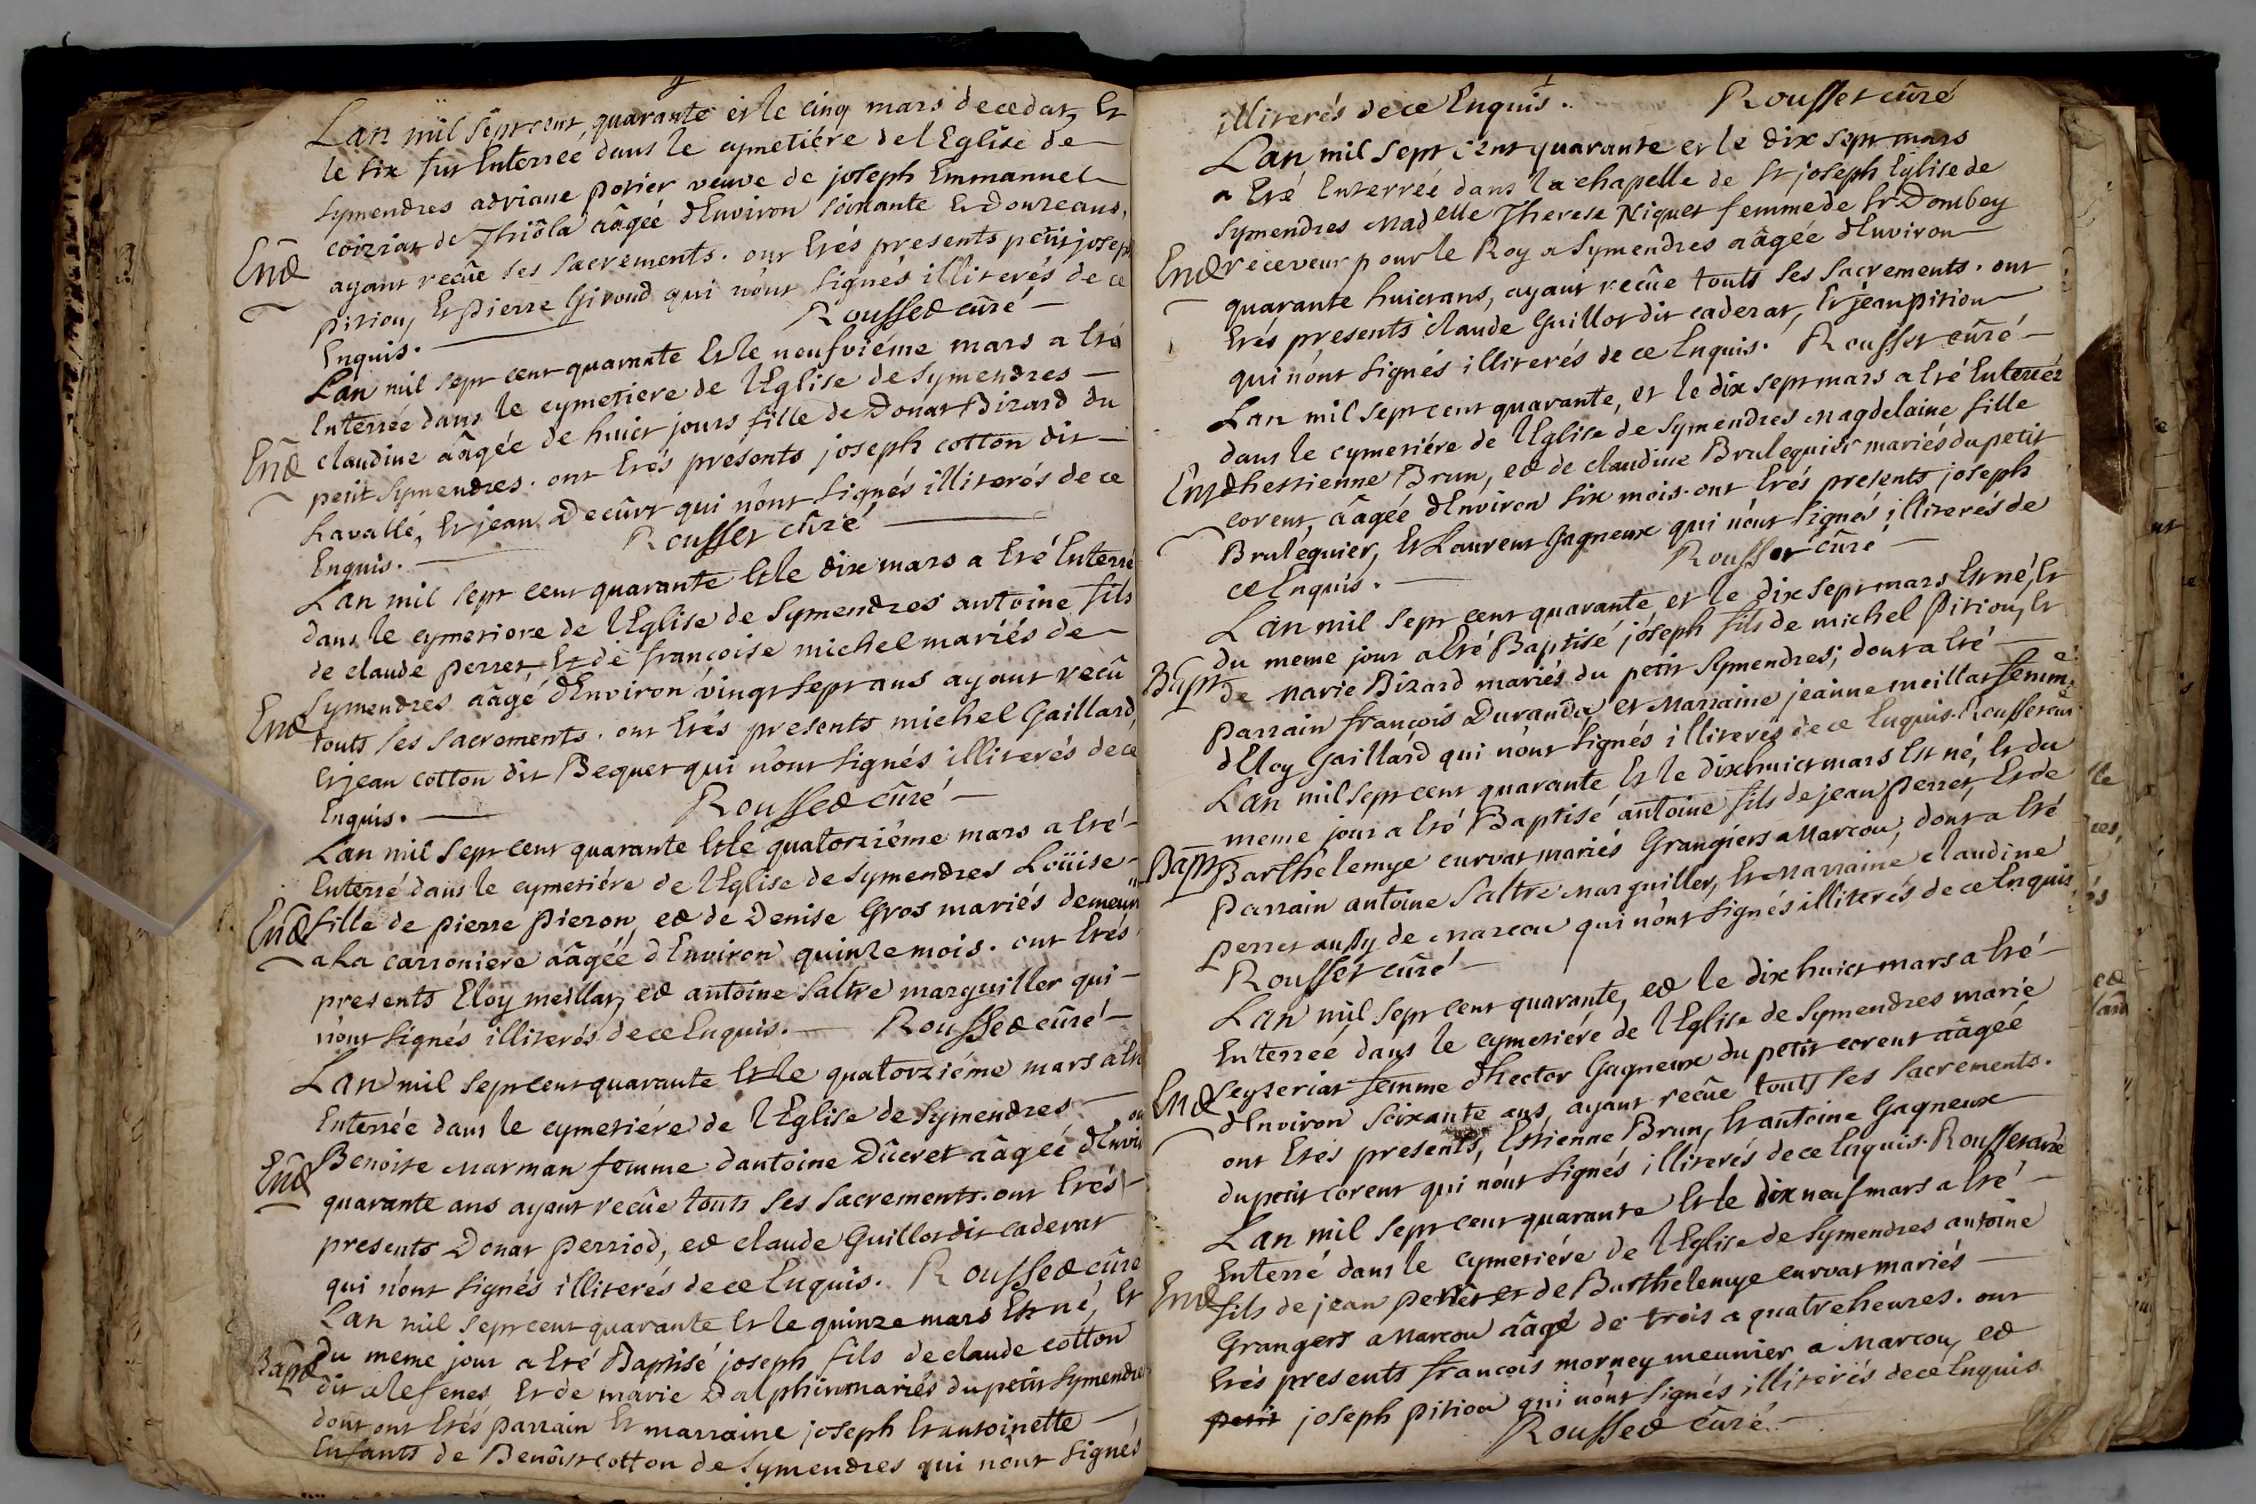 Lan mil sept cent quarante et le cinq mars deceda, et
le six fut Enterreé dans le cymetiére de l Eglise de
Symendres adriane potier veuve de joseph Emmanuel
coiziat de Thiôla aâgeé d Environ soixante et douze ans,
End ayant recûe ses sacrements. ont Etés presents petit joseph
pition, et pierre Giroud qui nónt signés illiterés de ce
Enquis. Rousset cûré
Lan mil sept cent quarante Et le neufviéme mars a Eté
Enterreé dans le cymetiere de l Eglise de Symendres
End claudine aâgée de huict jours fille de Donat Bizard du
petit Symendres. ont Etés présents joseph cotton dit
Lavallé, et jean Decûrt qui nónt signés illiterés de ce
Enquis. Rousset cûré
Lan mil sept cent quarante Et le dix mars a Eté Enterré
dans le cymetiere de l Eglise de Symendres antoine fils
de claude perret, Et de françoise michel mariés de
Symendres aâgé d Environ vingt sept ans ayant recû
End touts ses sacrements. ont Etés presents michel Gaillard,
Et jean cotton dit Bequet qui nónt signés illiterés de ce
Enquis. Rousset cûré
Lan mil sept cent quarante Et le quatorziéme mars a Eté
Enterré dans le cymetiére de l Eglise de Symendres Loüise
End fille de pierre pieron, et de Denise Gros mariés demeurt
a La carroniere aâgéé d Environ quinze mois. ont Etés
presents Eloy meillat, et antoine Saltre marguiller qui
nónt signés illiterés de ce Enquis. Rousset cûré
Lan mil sept cent quarante Et le quatorziéme mars a Eté
Enterrée dans le cymetiére de l Eglise de Symendres
End Benoite Marman femme dantoine Dûcret aâgeé d Environ
quarante ans ayant recûe touts ses sacrements. ont Etés
presents Donat perriod, et claude Guillot dit caderat
qui nónt signés illiterés de ce Enquis. Rousset cûré
Lan mil sept cent quarante Et le quinze mars Est né, Et
Bapt du meme jour a Eté Baptisé joseph fils de claude cotton
dit alefenes, Et de marie Dalphin mariés du petit Symendres
dont ont Etés parrain Et marraine joseph Et antoinette
Enfants de Benôist cotton de Symendres qui nónt signés
illiterés de ce Enquis. Rousset cûré
Lan mil sept cent quarante et le dix sept mars
a Eté Enterréé dans la chapelle de St joseph Eglise de
Symendres Mad elle Therese Niquet femme de Sr Dombey
End receveur pour le Roy a Symendres aâgéé d Environ
quarante huict ans, ayant recûe touts ses sacrements. ont
Etés presents claude Guillot dit caderat, Et jean pition
qui nónt signés illiterés de ce Enquis. Rousset cûré
Lan mil sept cent quarante, et le dix sept mars a Eté Enterrée
dans le cymetiére de l Eglise de Symendres Magdelaine fille
End dhestienne Brun, et de claudine Brulequier mariés du petit
corent, aâgée d Environ six mois. ont Etés presents joseph
Brulequier, Et Laurent Gagneux qui nónt signés illiterés de
ce Enquis. Rousset cûré
Lan mil sept cent quarante, et le dix sept mars Est né, Et
du meme jour a Eté Baptisé joseph fils de michel Pition, Et
Bapt de Marie Bizard mariés du petit Symendres; dont a Eté
parrain françois Durand, et Marraine jeanne meillat femme
d Eloy Gaillard qui nónt signés illiterés de ce Enquis. Rousset cur
Lan mil sept cent quarante Et le dix huict mars Est né, Et du
meme jour a Eté Baptisé antoine fils de jean perret, Et de
Bapt Barthelemye curvat mariés Grangiers a Marcou, dont a Eté
parrain antoine Saltre Marguiller, Et Marraine claudine
perret aussy de Marcou qui nónt signés illiterés de ce Enquis
Rousset cûré
Lan mil sept cent quarante, et le dix huict mars a Eté
Enterreé dans le cymetiére de l Eglise de Symendres marie
End Seyseriat femme dhector Gagneux du petit corent aâgeé
d Environ soixante ans, ayant recûe touts ses sacrements.
ont Etés presents, Estienne Brun, Et antoine Gagneux
du petit corent qui nónt signés illiterés de ce Enquis. Rousset curé
Lan mil sept cent quarante Et le dix neuf mars a Eté
Enterré dans le cymetiére de l Eglise de Symendres antoine
End fils de jean perret et de Barthelemye curvat mariés
Grangers a Marcou aâgé de trois a quatre heures. ont
Etés presents françois morney meunier a Marcou, et
petit joseph pition qui nónt signés illiterés de ce Enquis
Rousset cûré